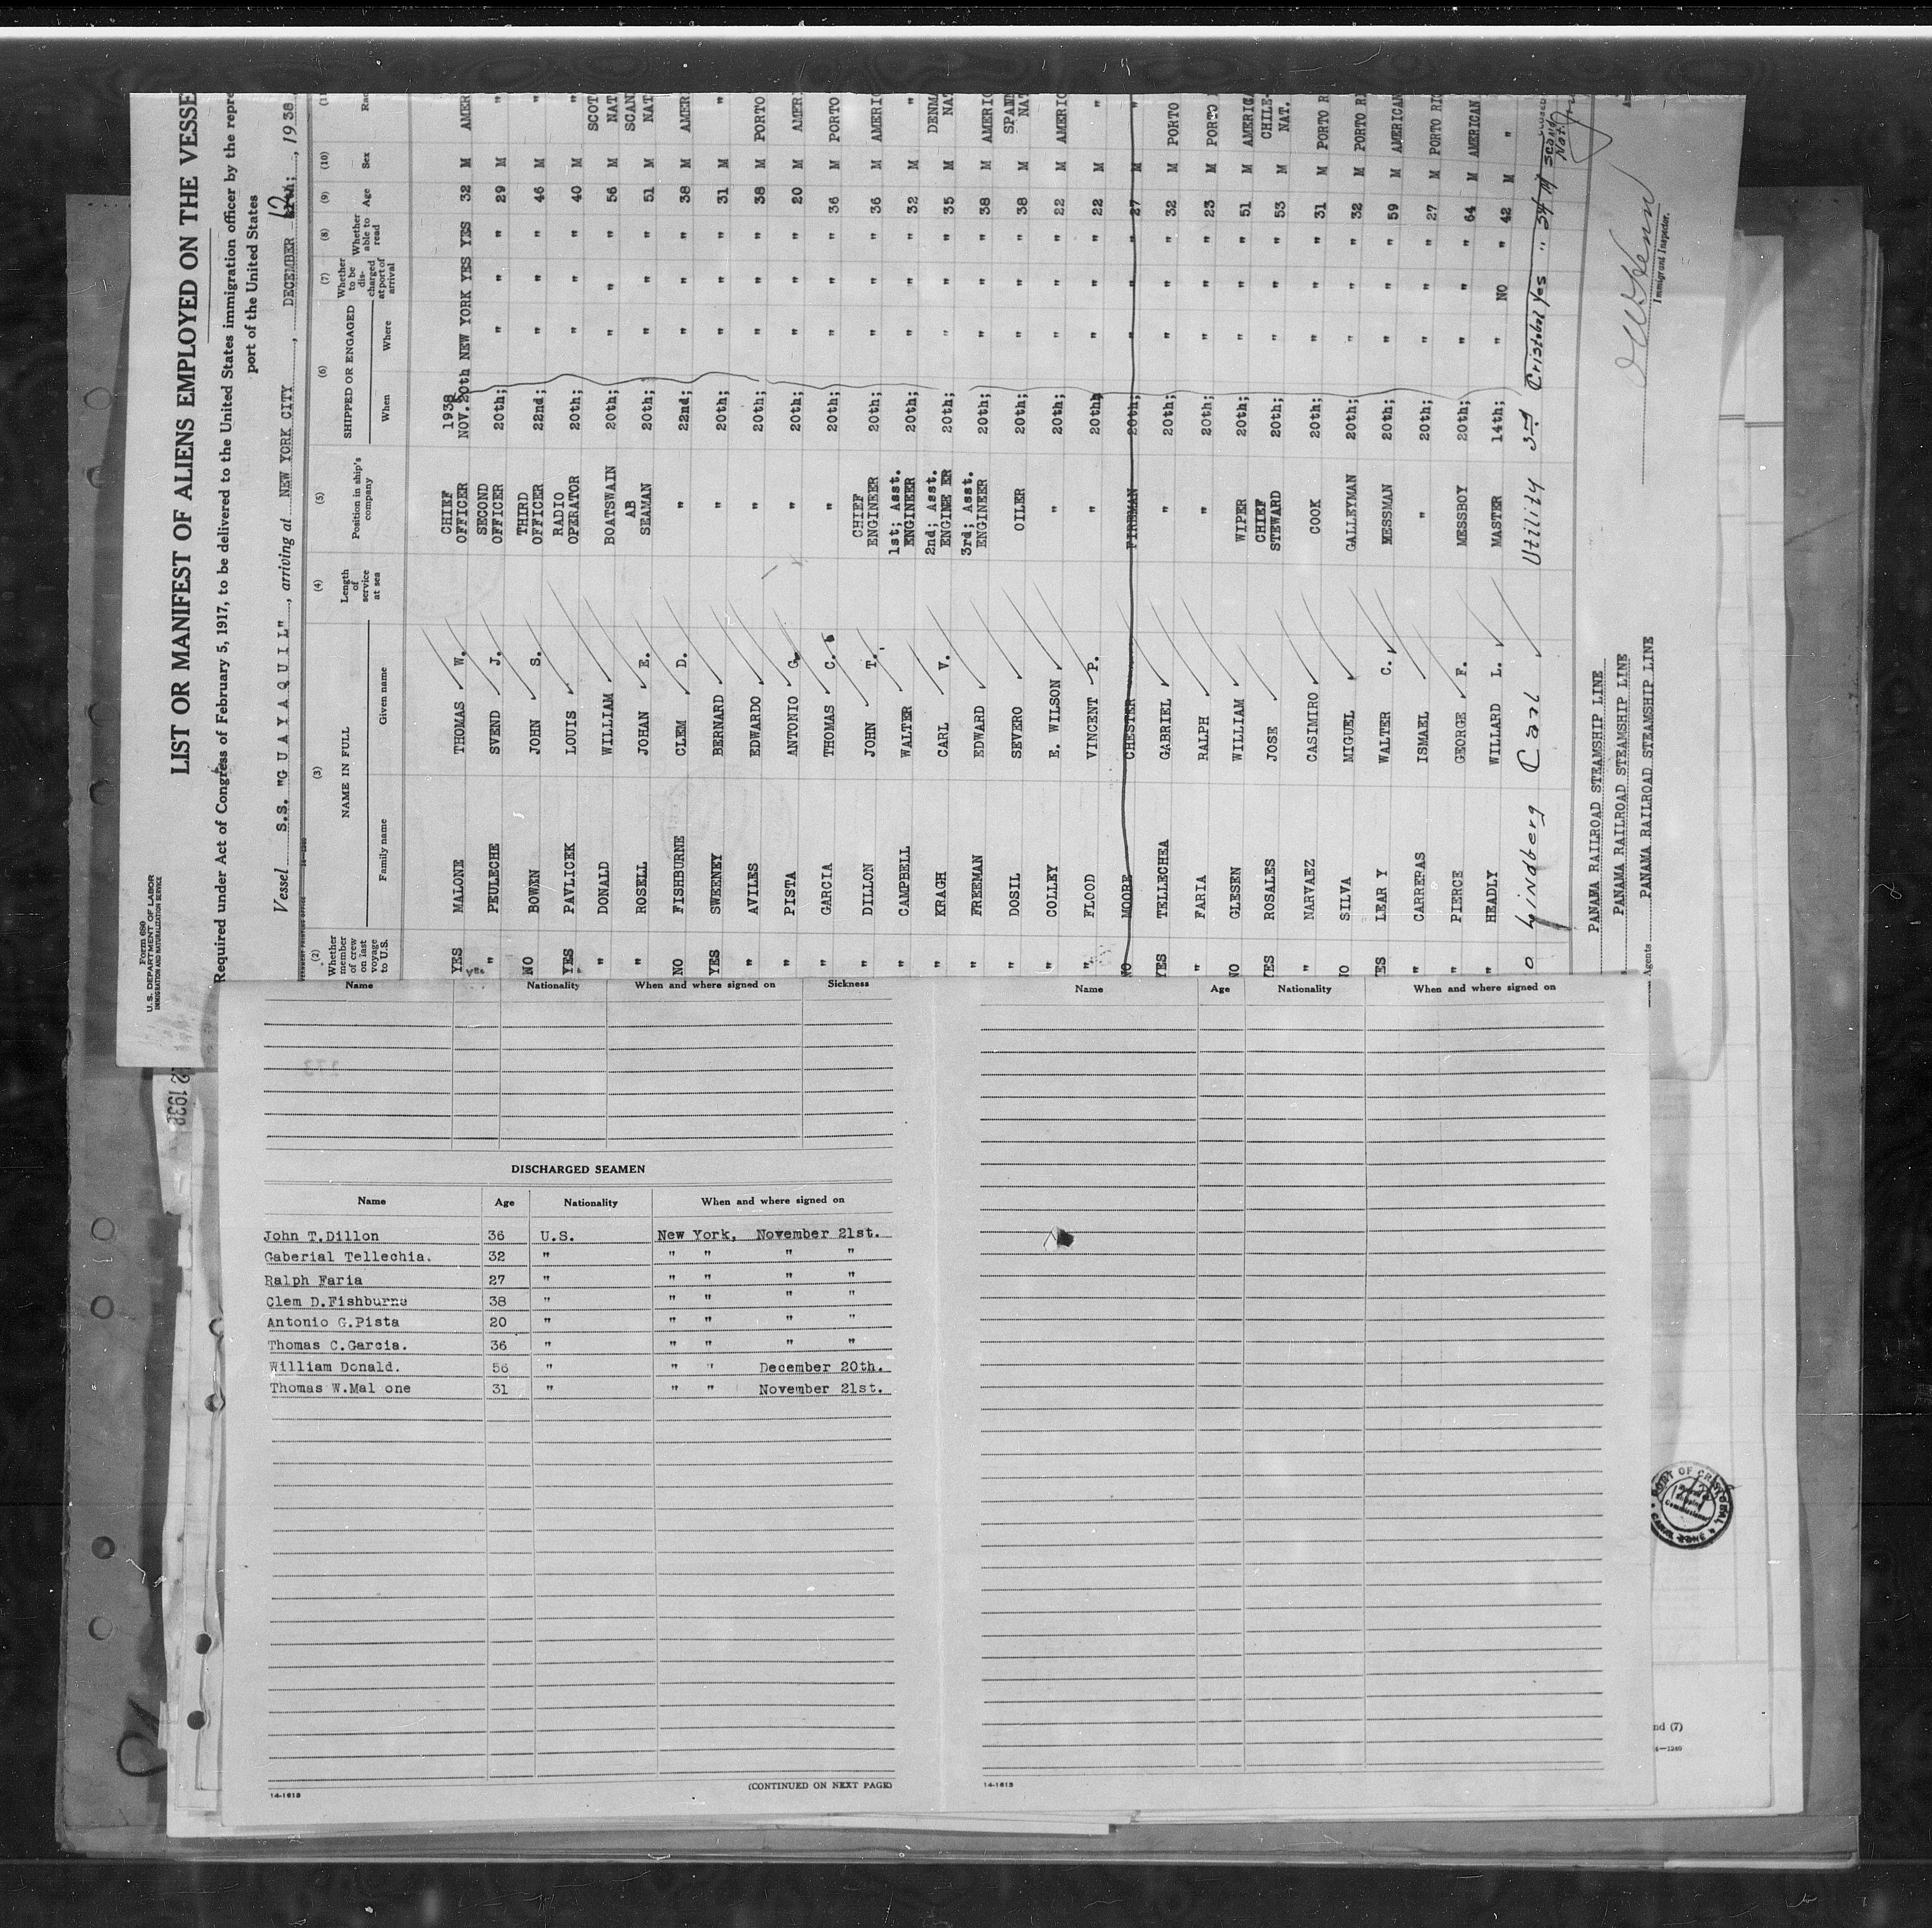 Form 680
U.S. DEPARTMENT OF LABOR
IMMIGRATION AND NATURALIZATION SERVICE
LIST OR MANIFEST OF ALIENS EMPLOYED ON THE VESSE
Required under Act of Congress of February 5, 1917, to be delivered to the United States immigration officer by the repre
port of the United States
Vessel S.S. "G U A Y A Q U I L", arriving at NEW YORK CITY, DECEMBER 12, 1938
(2) (3) (4) (5) (6) (7) (8) (9) (10) (11
Whether member of crew on last voyage to U.S. NAME IN FULL Family name Given name Length of service at sea Position in ship's company SHIPPED OR ENGAGED When Where Whether to be discharged at port of arrival Whether able to read Age Sex Rac
1938
YES MALONE THOMAS W. CHIEF OFFICER NOV. 20th NEW YORK YES YES 32 M AMER
" PEULECHE SVEND J. SECOND OFFICER 20th; " " " 29 M "
NO BOWEN JOHN S. THIRD OFFICER 22nd; " " " 46 M "
YES PAVLICEK LOUIS RADIO OPERATOR 20th; " " " 40 M "
" DONALD WILLIAM BOATSWAIN 20th; " " " 56 M SCOT NAT
" ROSELL JOHAN E. AB SEAMAN 20th; " " " 51 M SCAN NAT
NO FISHBURNE CLEM D. " 22nd; " " " 38 M AMER
YES SWEENEY BERNARD " 20th; " " " 31 M "
" AVILES EDWARDO " 20th; " " " 38 M PORTO
" PISTA ANTONIO G. " 20th; " " " 20 M AMERI
" GARCIA THOMAS C. " 20th; " " " 36 M PORTO
" DILLON JOHN T. CHIEF ENGINEER 20th; " " " 36 M AMERIC
" CAMPBELL WALTER 1st; Asst. ENGINEER 20th; " " " 32 M "
" KRAGH CARL V. 2nd; Asst. ENGINE ER 20th; " " " 35 M DENMA NAT
" FREEMAN EDWARD 3rd; Asst. ENGINEER 20th; " " " 38 M AMERIC
" DOSIL SEVERO OILER 20th; " " " 38 M SPAN NAT
" COLLEY E. WILSON " 20th; " " " 22 M AMERIC
" FLOOD VINCENT P. " 20th; " " " 22 M "
NO MOORE CHESTER FIREMAN 20th; " " " 27 M "
YES TELLECHEA GABRIEL " 20th; " " " 32 M PORTO
" FARIA RALPH " 20th; " " " 23 M PORTO
NO GLESEN WILLIAM WIPER 20th; " " " 51 M AMERICA
YES ROSALES JOSE CHIEF STEWARD 20th; " " " 53 M CHILE- NAT.
" NARVAEZ CASIMIRO COOK 20th; " " " 31 M PORTO R
NO SILVA MIGUEL GALLEYMAN 20th; " " " 32 M PORTO RI
YES LEAR Y WALTER C. MESSMAN 20th; " " " 59 M AMERICAN
" CARRERAS ISMAEL " 20th; " " " 27 M PORTO RIC
" PIERCE GEORGE F. MESSBOY 20th; " " " 64 M AMERICAN
" HEADLY WILLARD L. MASTER 14th; " NO " 42 M "
o Lindberg Carl Utility 3rd Cristobal Yes " 34 M Scand Nat.
PANAMA RAILROAD STEAMSHIP LINE
PANAMA RAILROAD STEAMSHIP LINE
Agents PANAMA RAILROAD STEAMSHIP LINE
Immigrant Inspector.
Name Nationality When and where signed on Sickness
DISCHARGED SEAMEN
Name Age Nationality When and where signed on
John T.Dillon 36 U.S. New York, November 21st.
Gaberial Tellechia. 32 " " " " "
Ralph Faria 27 " " " " "
Clem D.Fishburne 38 " " " " "
Antonio G.Pista 20 " " " " "
Thomas C.Garcia. 36 " " " " "
William Donald. 56 " " " December 20th.
Thomas W.Mal one 31 " " " November 21st.
(CONTINUED ON NEXT PAGE)
14-1613
Name Age Nationality When and where signed on
14-1613
PORT OF CRISTOBAL
CANAL ZONE
nd (7)
4—1240
2 1938